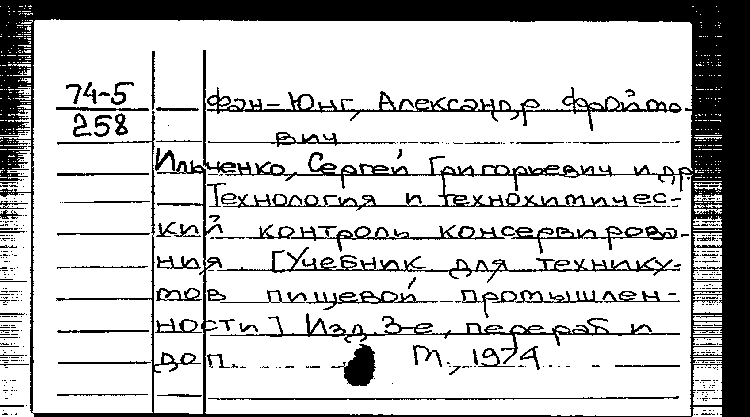 74-5 Фан-Юнг, Александр Фроймо-
258 вич
Ильченко, Сергей Григорьевич и др
Технология и технохимичес-
кий контроль консервирова-
ния. [Учебник для технику-
мов пищевой промышлен-
ности] Изд. 3-е, перераб и
доп. М., 1974